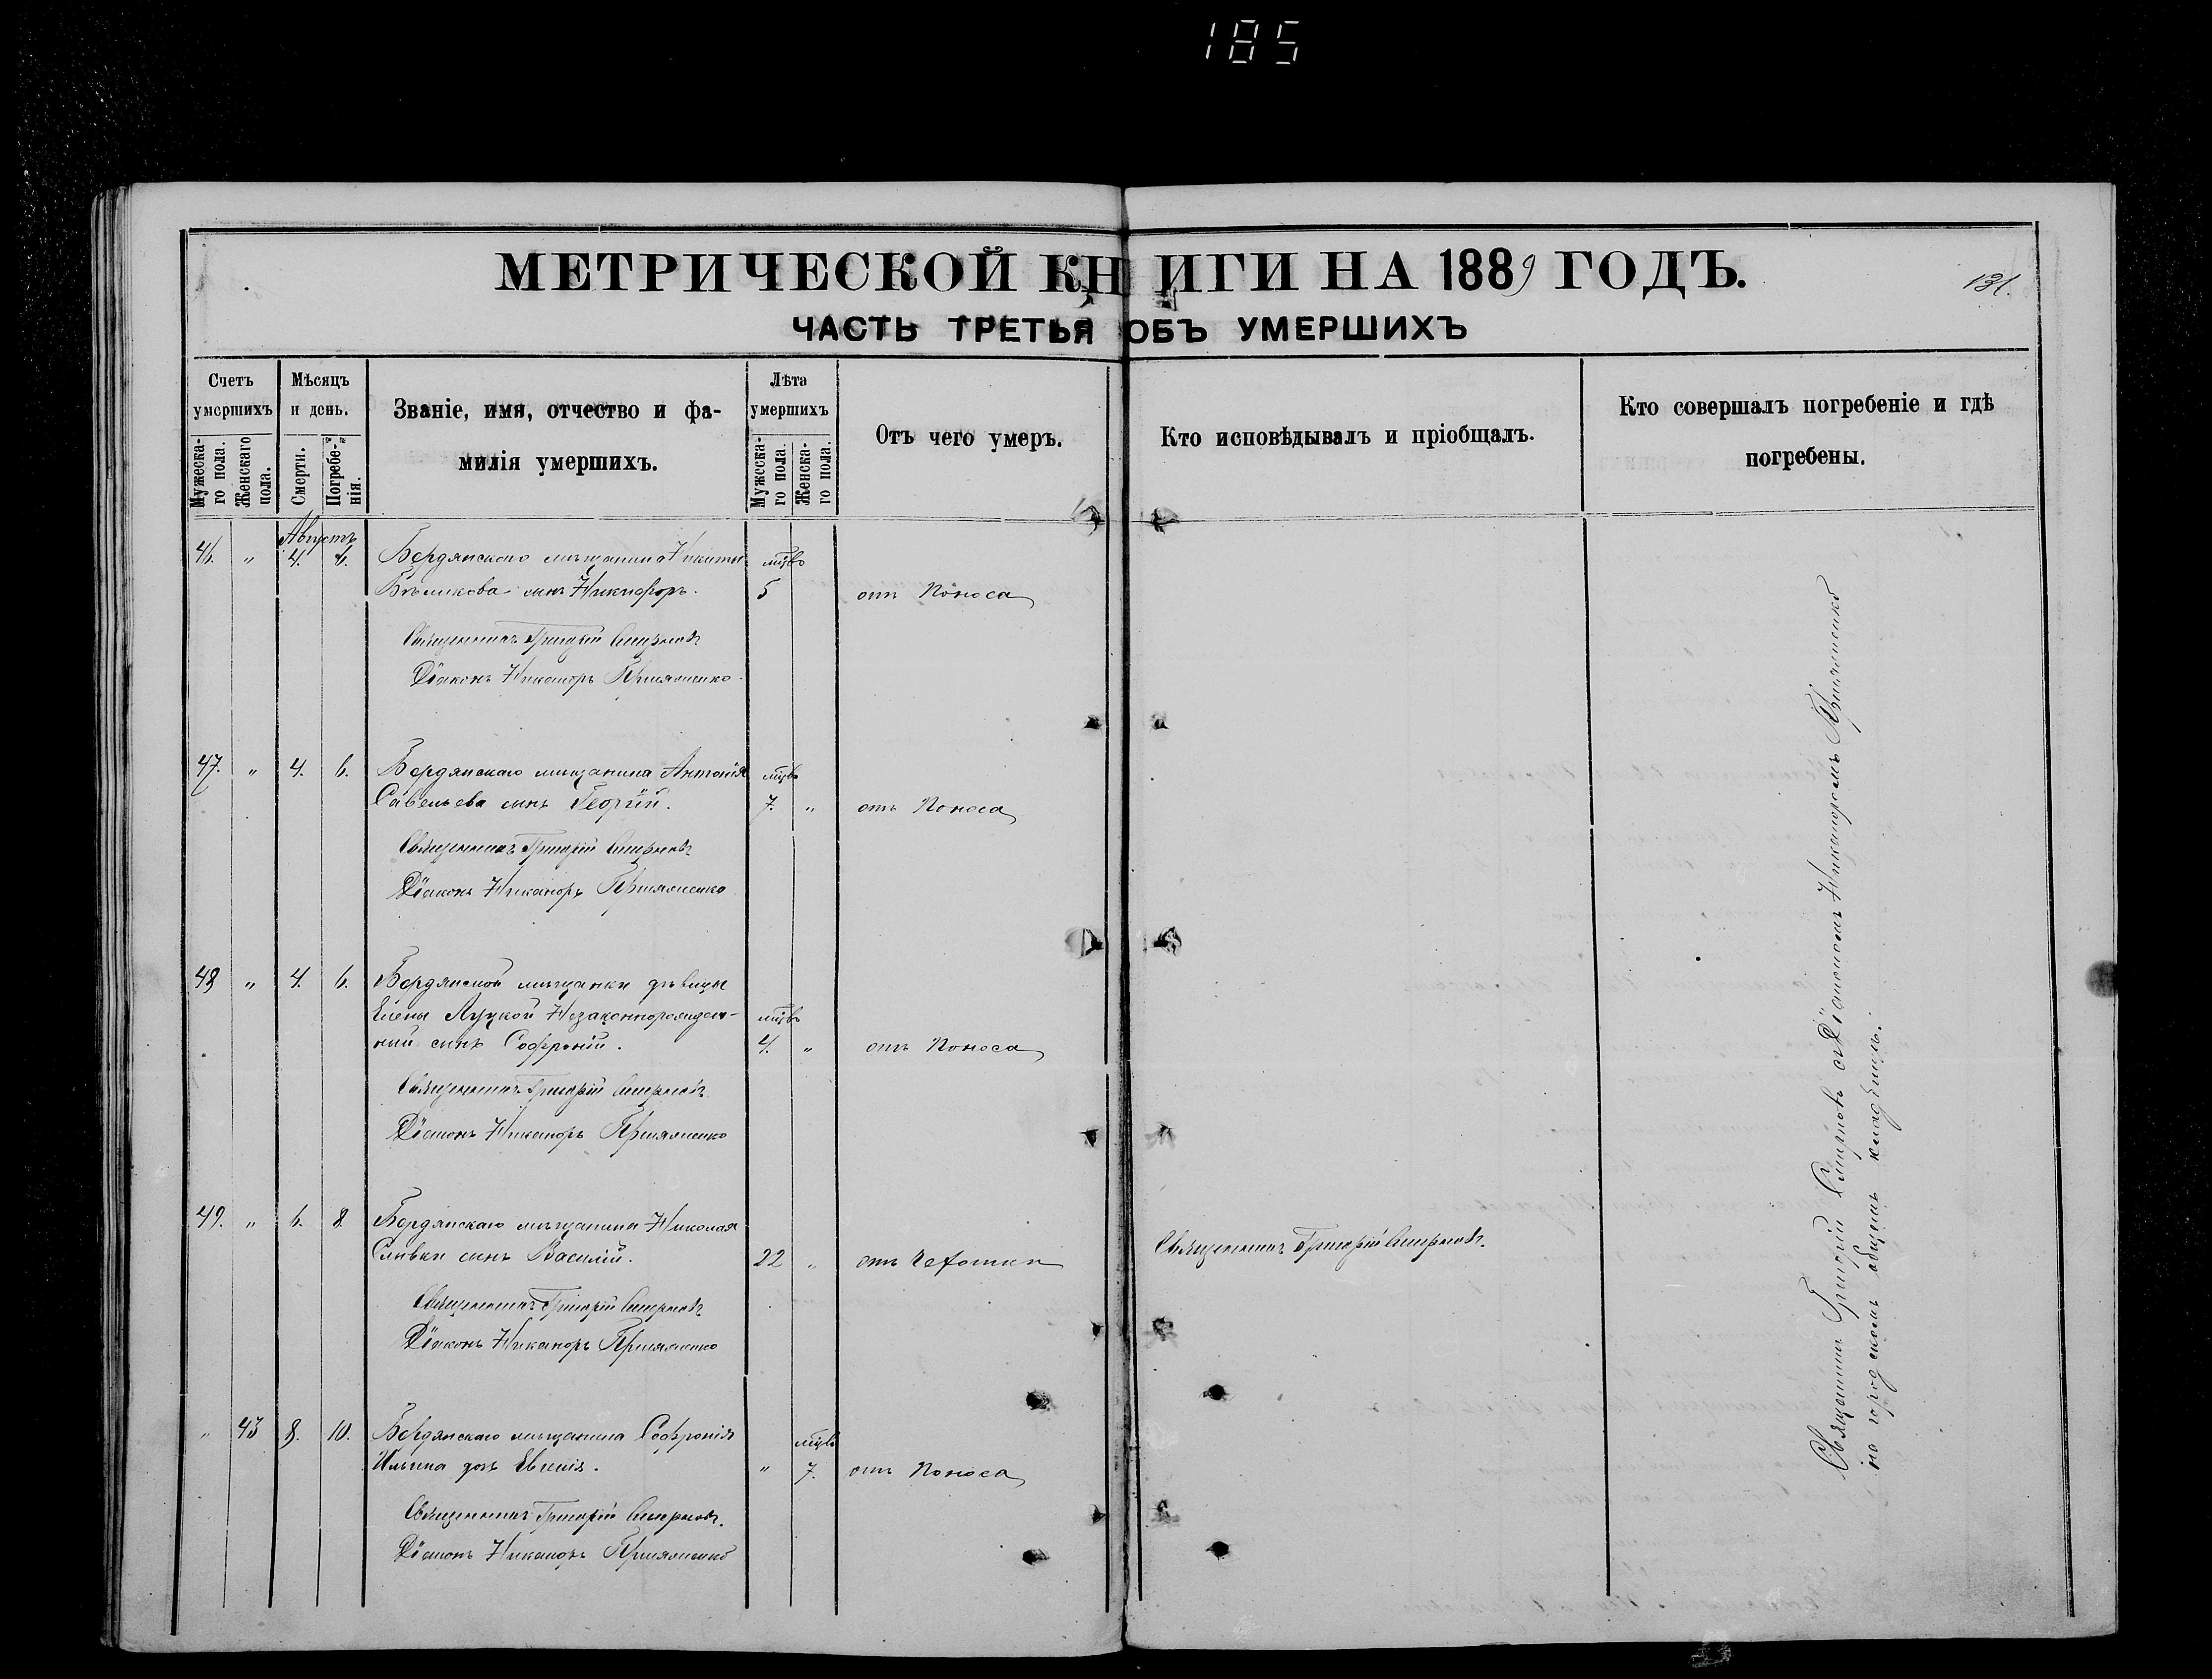 185
МЕТРИЧЕСКОЙ КНИГИ НА 1889 ГОДЪ.
131.
ЧАСТЬ ТРЕТЬЯ ОБЪ УМЕРШИХЪ
Счетъ умершихъ
Мужеска-го пола.
Женскаго пола.
Мѣсяцъ и день.
Смерти.
Погребе-нія.
Званіе, имя, отчество и фа-
милія умершихъ.
Лѣта умершихъ
Мужеска-го пола.
Женска-го пола.
Отъ чего умеръ.
Кто исповѣдывалъ и пріобщалъ.
Кто совершалъ погребеніе и гдѣ
погребены.
Августъ
46. " 4. 6. Бердянскаго мѣщанина Никиты мцвъ
сынъ Никифоръ. 5 отъ Поноса
Священникъ Григорій Смирновъ
Діаконъ Никаноръ
47. " 4. 6. Бердянскаго мѣщанина Антонія мцвъ
Савельева сынъ Георгій. 7. " отъ Поноса
Священникъ Григорій Смирновъ
Діаконъ Никаноръ
48 " 4. 6. Бердянской мѣщанки дѣвицы
Елены Луцкой Незаконнорожден- мцвъ
ный сынъ Софроній. 4. " отъ Поноса
Священникъ Григорій Смирновъ
Діаконъ Никаноръ
49. " 6. 8. Бердянскаго мѣщанина Николая
Сливки сынъ Василій. 22 " отъ Чахотки Священникъ Григорій Смирновъ.
Священникъ Григорій Смирновъ
Діаконъ Никаноръ
" 43 8. 10. Бердянскаго мѣщанина Софронія мцвъ
Ильина дочь Евгенія. " 7. отъ Поноса
Священникъ Григорій Смирновъ.
Діаконъ Никаноръ
Священникъ Григорій Смирновъ съ Діакономъ Никаноромъ
на городскомъ общемъ кладбищѣ.